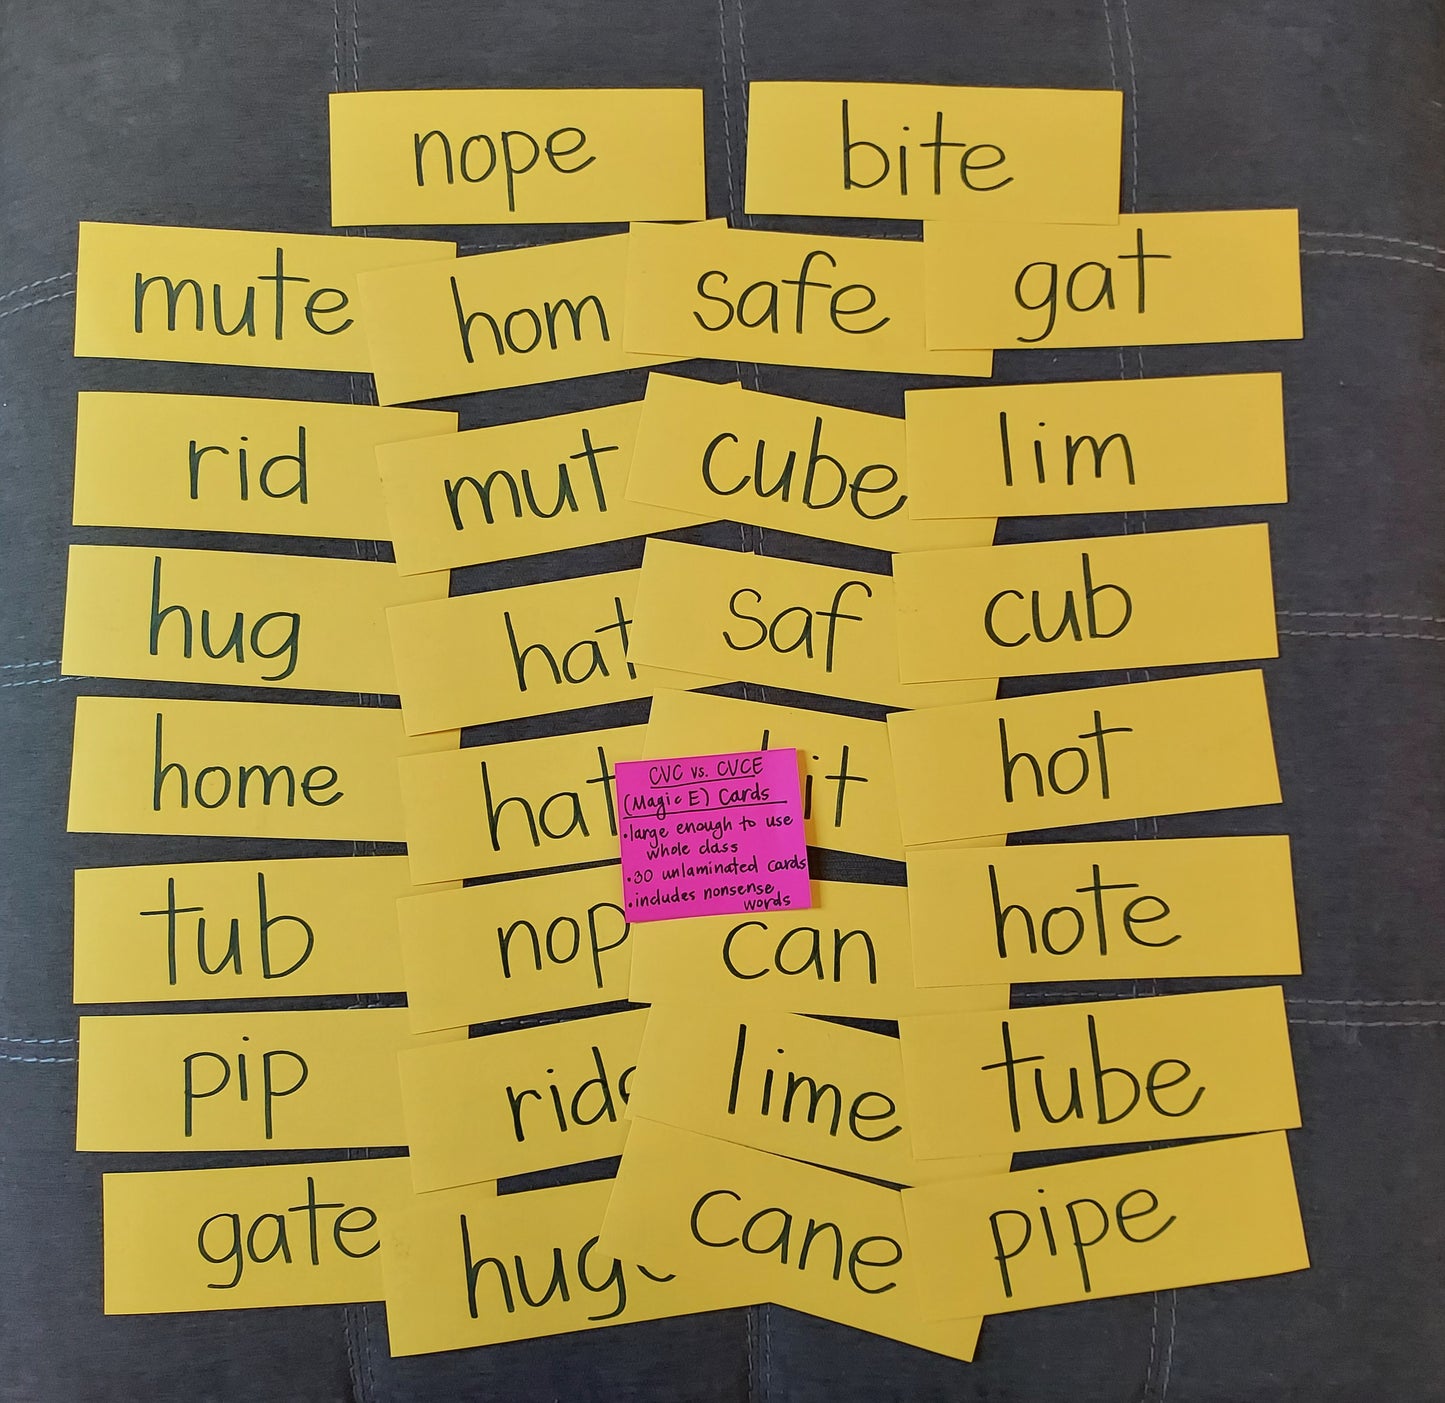 nope bite
mute hom safe gat
rid mut cube lim
hug hat saf cub
home hat it hot
CVC vs. CVCE
(Magic E) Cards
•large enough to use
whole class
•30 unlaminated cards
•includes nonsense
words
tub nop can hote
pip ride lime tube
gate huge cane pipe